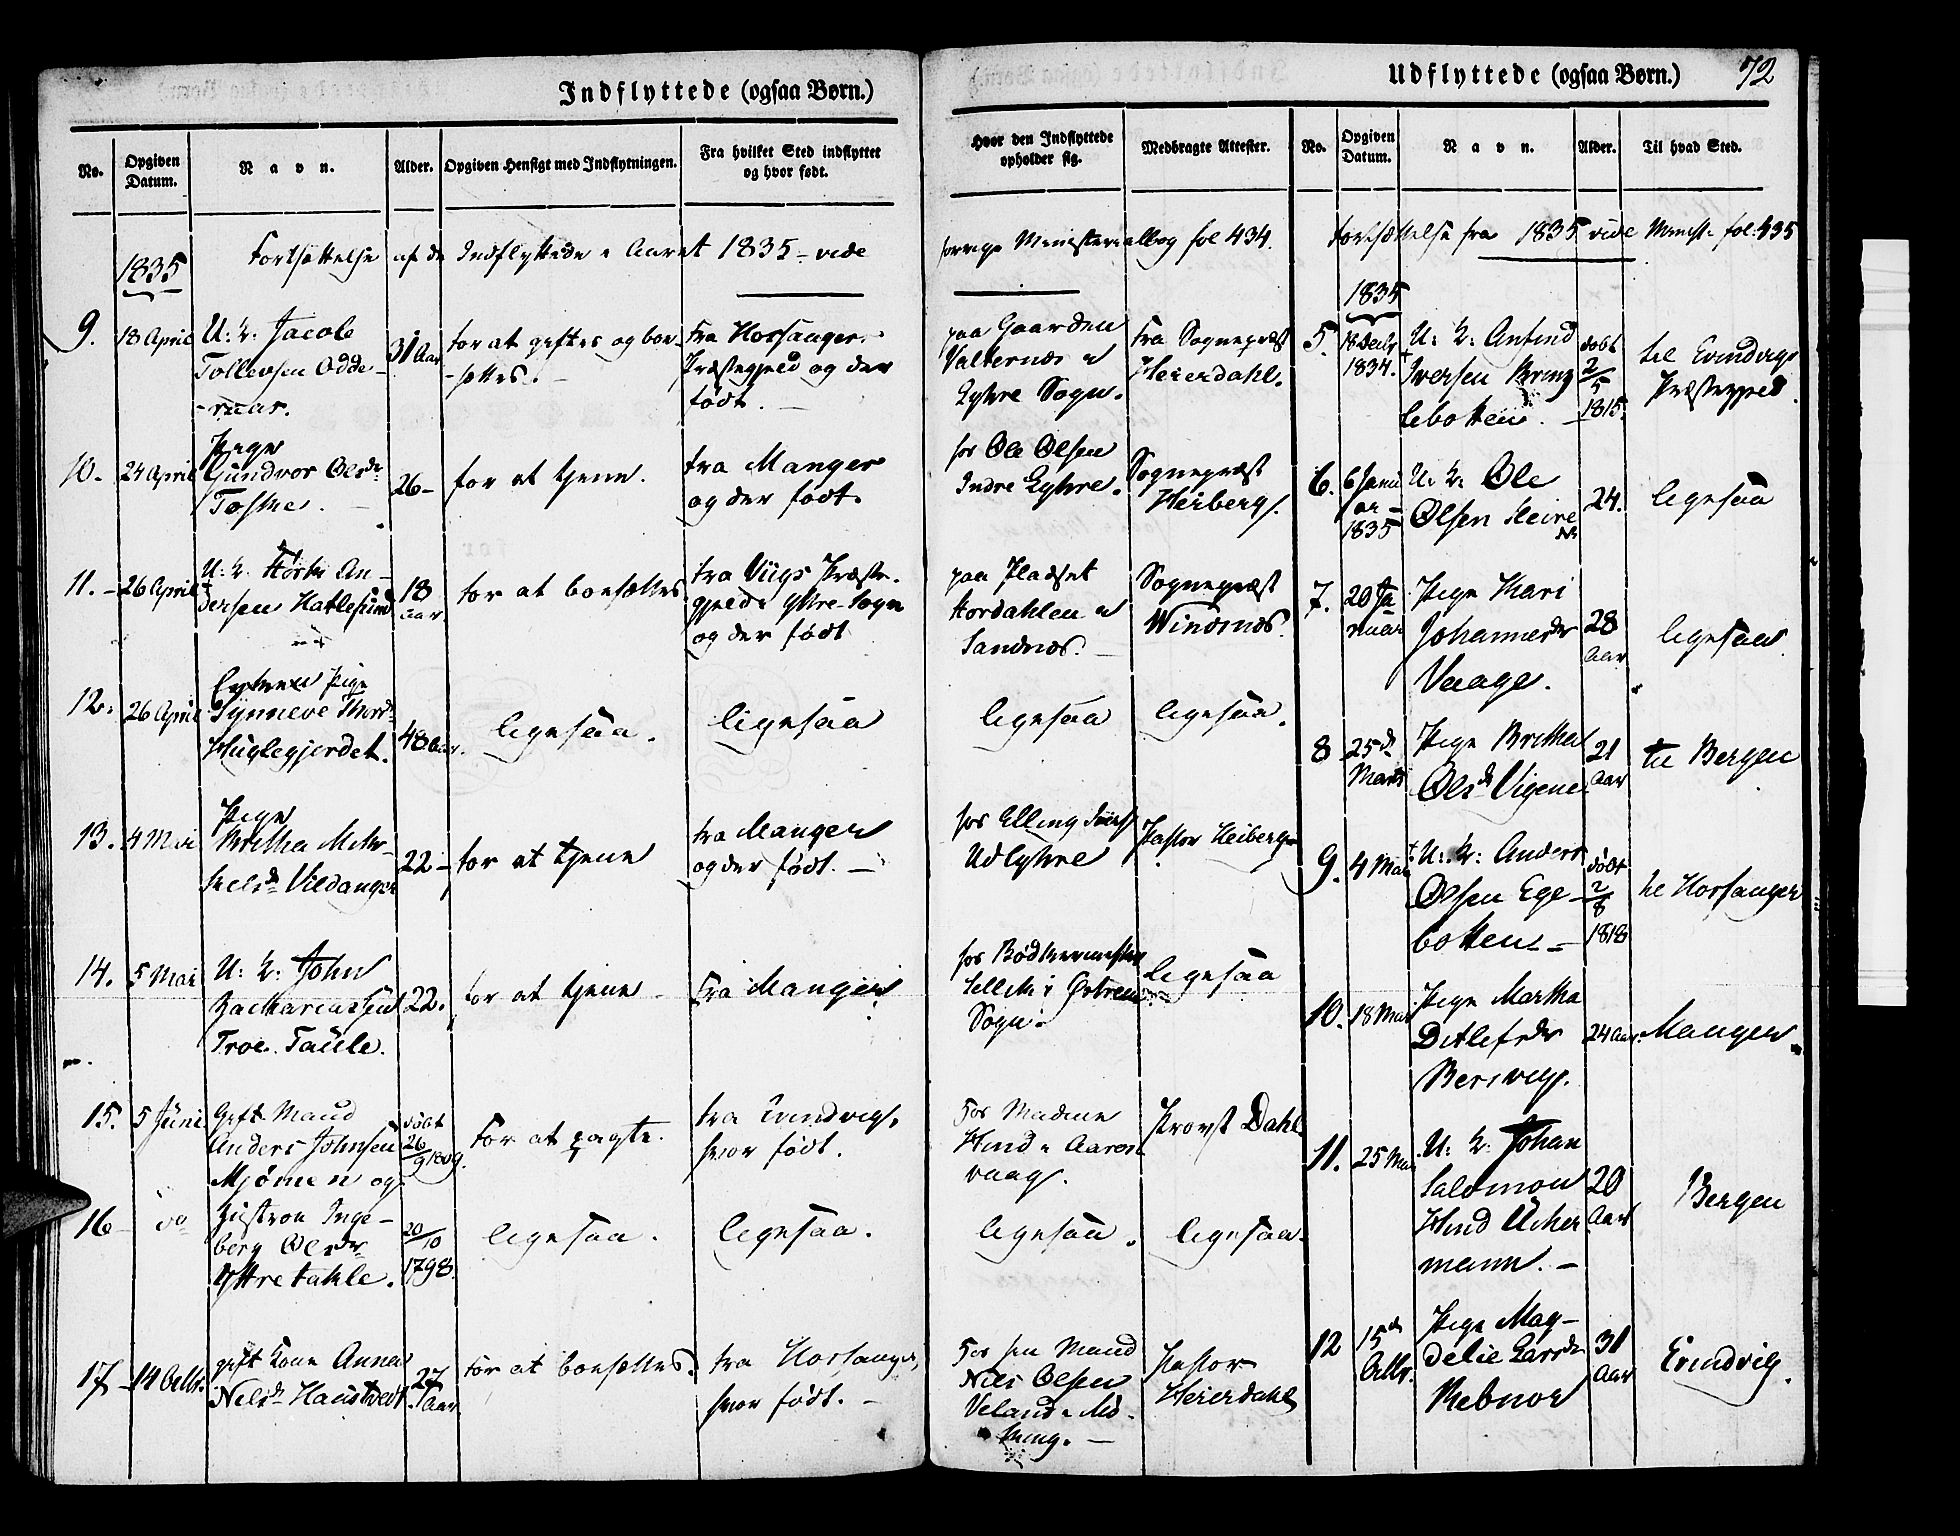 Indflyttede (ogsaa Børn.)
No.
Opgiven Datum.
Navn.
Alder.
Opgiven Hensigt med Indflytningen.
Fra hvilket Sted indflyttet og hvor født.
Hvor den Indflyttede opholder sig.
Medbragte Attester.
1835
Fortsættelse af de Indflyttede i Aaret 1835 – vide
forrige Ministerialbog fol 434.
9.
18 April
U: K: Jacob
Tollevsen Odde-
-naas.
31 Aar
for at giftes og boe-
-sættes. –
Fra Hosanger
Præstegjeld og der
født. –
paa Gaarden
Valdernæs i
Lyhre Sogn.
Fra Sognepræst
Heierdahl.
10.
24 April
Pige
Gundvor Olsdr
Toske.
26 –
for at tjene.
fra Manger
og der født.
for Ole Olsen
Indre Lyhre.
Sognepræst
Heiberg.
11. –
26 April
U: K: An-
dersen Hatlesund
18
aar
for at boesættes
fra Viigs Præste-
gjeld Sogn
og der født
paa Pladset
Hordahlen i
Sandnæs. –
Sognepræst
Windenæs.
12.
26 April
Pige
Synneve
Huglegjerdet.
48 Aar.
ligesaa.
ligesaa
ligesaa
ligesaa.
13.
4 Mai
Pige
Britha Mik-
kelsdr Vildanger
22 –
for at tjene
fra Manger
og der født. –
for Elling
Udlyhre
Pastor Heiberg
14.
5 Mai
U: K: John
Zachariassen
Troe. Taule.
22.
for at tjene –
Fra Manger
for Bødkermester
i Østrem
Sogn.
ligesaa
15.
5 Juni
Gift Mand
Anders Johnsen
Mjømen og
født
26/9 1809.
For at pagte.
fra Evindvig,
hvor født.
For Madme
Hind i Aares-
vaag.
Provst Dahl
16 –
do
Hustroe Inge-
berg Olsdr
Yttre takle.
20/10
1798.
ligesaa.
ligesaa.
ligesaa.
ligesaa.
17 –
14 Octbr.
gift Kone Anna
Nielsdr Haustvedt.
27
Aar
For at boesættes.
fra Hosanger,
hvor født. –
For sin Mand
Niels Olsen
Veland i Mas-
Pastor
Heierdahl
Udflyttede (ogsaa Børn.)
72
No.
Opgiven Datum.
Navn.
Alder.
Til hvad Sted.
Fortsættelse fra 1835 vide Minist: fol: 435
1835
5.
18 Decbr
1834.
U: K: Anfind
Iversen Bring
lebotten. –
født
2/5
1815.
til Evindvigs
Præstegjeld.
6.
6 Janu
ar –
1835
U: K: Ole
Olsen Keire
24.
ligesaa
7.
20 Ja-
nuar
Pige Kari
Johannesdr
Vaage.
28
Aar
ligesaa.
8
25de
Marts
Pige Britha
Olsdr Vigene.
21
Aar
til Bergen
9.
4 Mai
U: K: Anders
Olsen Ege-
botten –
født
2/8
1818
til Hosanger
10.
18 Mai
Pige Martha
Ditlefsdr
Bersvig.
24 Aar.
Manger.
11.
25 Mai
U: K: Johan
Salomon
Hind Acker
mann. –
20
Aar
Bergen
12
15de
Octbr.
Pige Mag-
delie Larsdr
Rebnor
31
Aar
Evindvig.